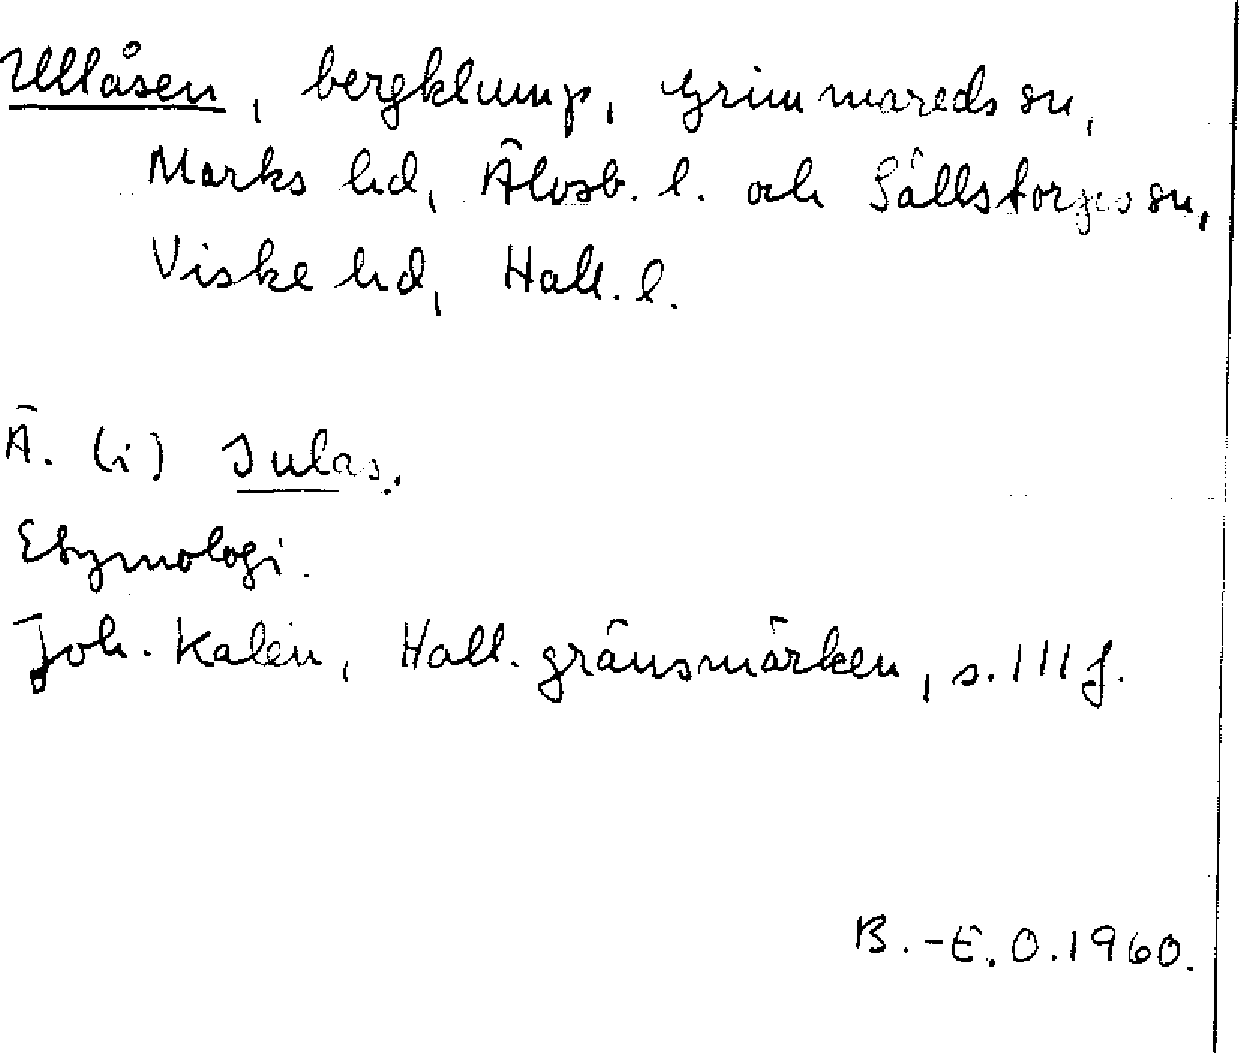 Ullåsen, bergklump, Grimmareds sn,
Marks hd, Älvsb. l. och Sällstorps sn,
Viske hd, Hall. l.
Ä. (i) Julas.
Etymologi.
Joh. Kalén, Hall. gränsmärken, s. 111 f.
B.-E. O. 1960.